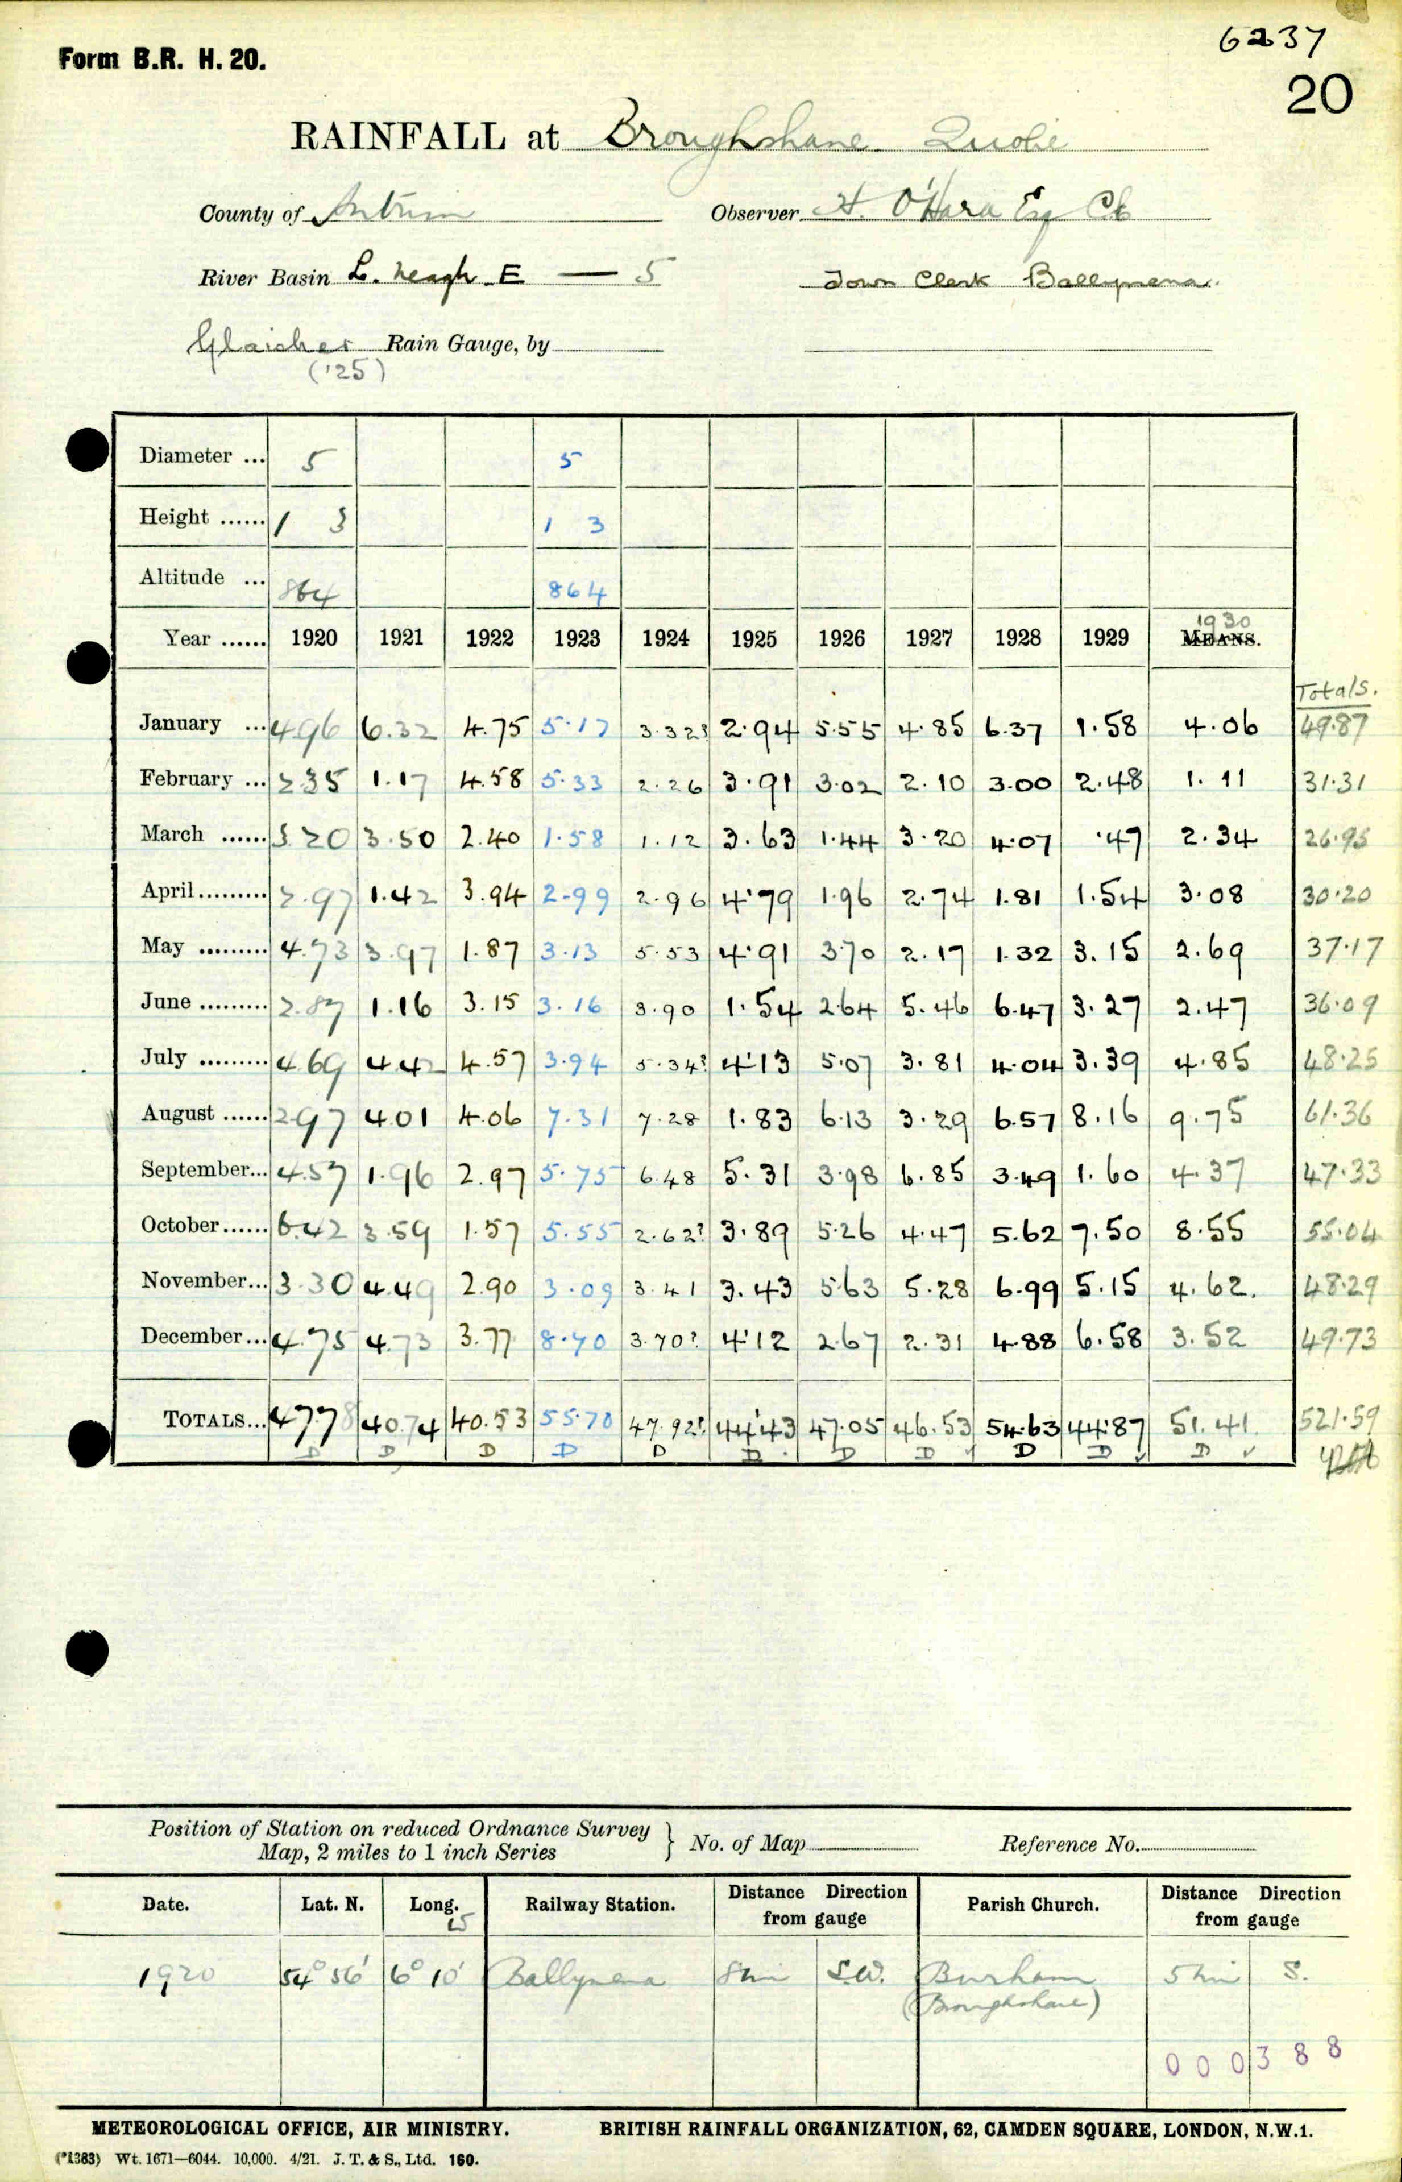 6237
Form B.R. H. 20.
20
RAINFALL at Broughshane Quolie
County of Antrim Observer H. O'Hara Esq CE
River Basin L. Neagh E — 5 Town Clerk Ballymena.
Glaisher Rain Gauge, by
('25)
Diameter ... 5 5
Height ...... 1 3 1 3
Altitude ... 864 864
1930
Year ...... 1920 1921 1922 1923 1924 1925 1926 1927 1928 1929 MEANS.
Totals.
January ... 4.96 6.32 4.75 5.17 3.32? 2.94 5.55 4.85 6.37 1.58 4.06 49.87
February ... 2.35 1.17 4.58 5.33 2.26 3.91 3.02 2.10 3.00 2.48 1.11 31.31
March ...... 3.20 3.50 2.40 1.58 1.12 3.63 1.44 3.20 4.07 .47 2.34 26.95
April ......... 2.97 1.42 3.94 2.99 2.96 4.79 1.96 2.74 1.81 1.54 3.08 30.20
May ......... 4.73 3.97 1.87 3.13 5.53 4.91 3.70 2.17 1.32 3.15 2.69 37.17
June ......... 2.87 1.16 3.15 3.16 3.90 1.54 2.64 5.46 6.47 3.27 2.47 36.09
July ......... 4.69 4.42 4.57 3.94 5.34? 4.13 5.07 3.81 4.04 3.39 4.85 48.25
August ...... 2.97 4.01 4.06 7.31 7.28 1.83 6.13 3.29 6.57 8.16 9.75 61.36
September... 4.57 1.96 2.97 5.75 6.48 5.31 3.98 6.85 3.49 1.60 4.37 47.33
October...... 6.42 3.59 1.57 5.55 2.62? 3.89 5.26 4.47 5.62 7.50 8.55 55.04
November... 3.30 4.49 2.90 3.09 3.41 3.43 5.63 5.28 6.99 5.15 4.62. 48.29
December... 4.75 4.73 3.77 8.70 3.70? 4.12 2.67 2.31 4.88 6.58 3.52 49.73
TOTALS... 47.78 40.74 40.53 55.70 47.92? 44.43 47.05 46.53 54.63 44.87 51.41 521.59
D D D D D D D D D D D
Position of Station on reduced Ordnance Survey
Map, 2 miles to 1 inch Series } No. of Map Reference No.
Date. Lat. N. Long. W Railway Station. Distance Direction from gauge Parish Church. Distance Direction from gauge
1920 54° 56' 6° 10' Ballymena 8mi S.W. 5mi S.
(Broughshane)
000388
METEOROLOGICAL OFFICE, AIR MINISTRY. BRITISH RAINFALL ORGANIZATION, 62, CAMDEN SQUARE, LONDON, N.W.1.
(*1383) Wt. 1671—6044. 10,000. 4/21. J. T. & S., Ltd. 160.